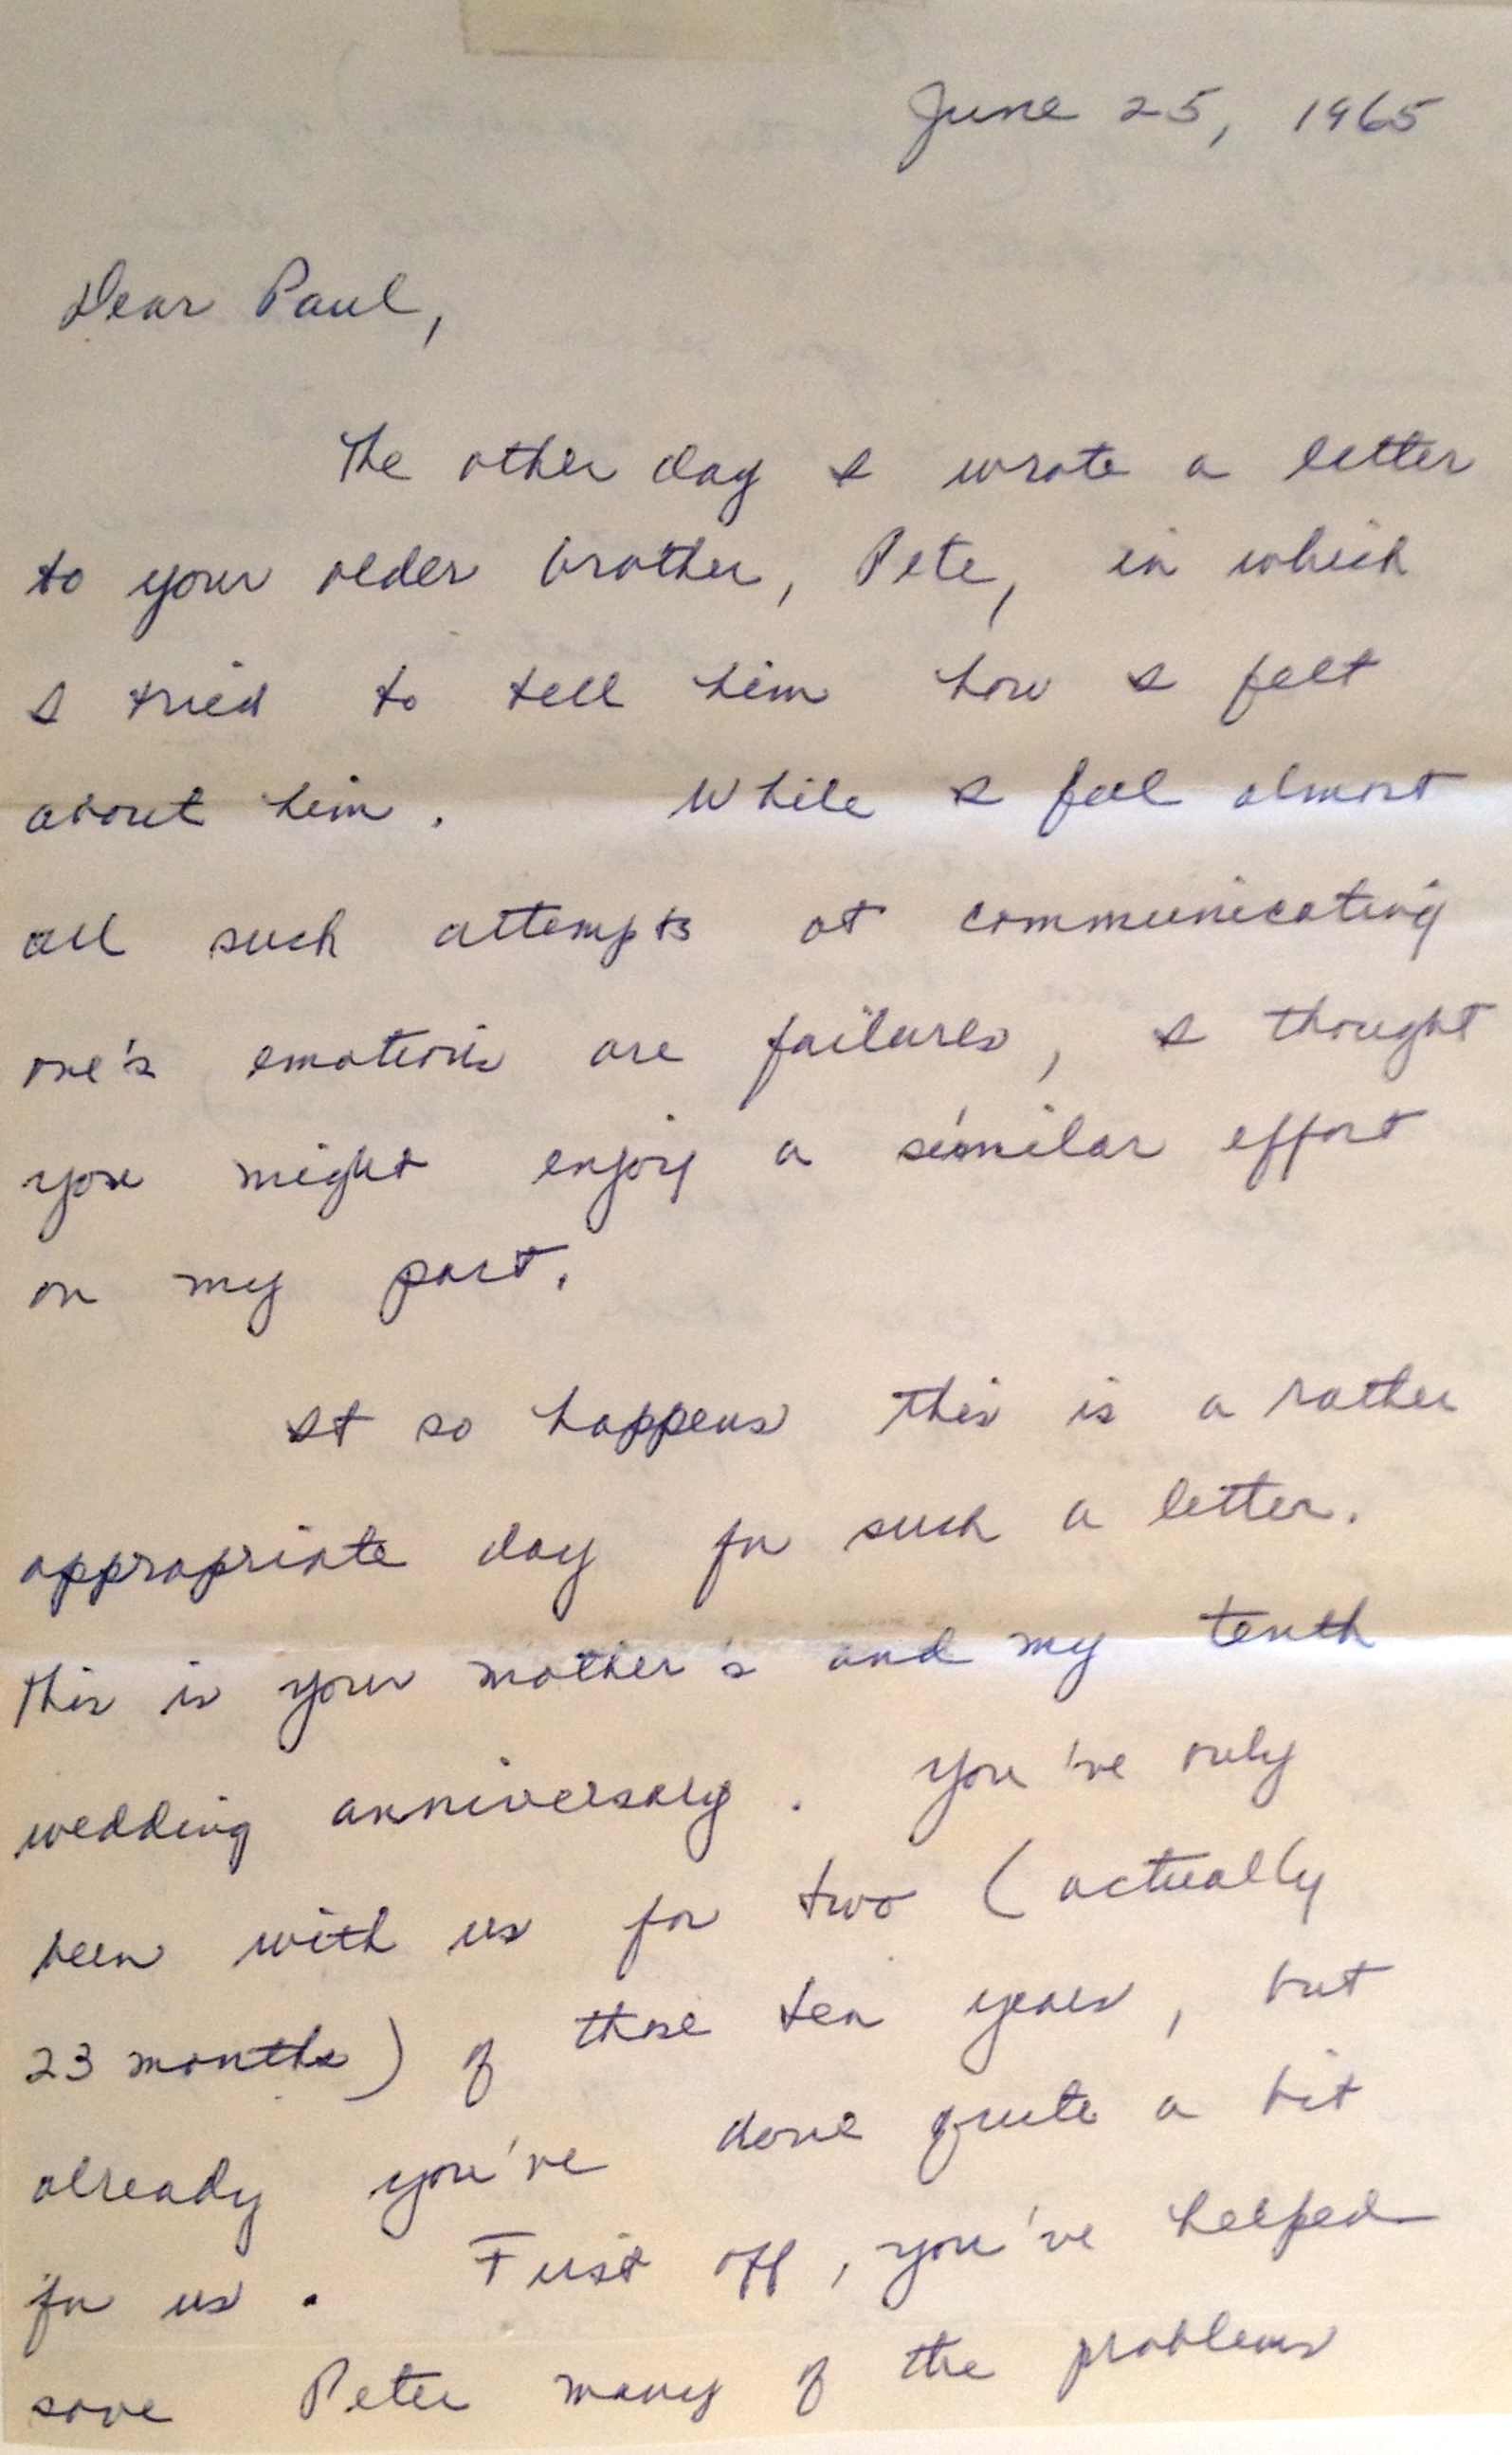 June 25, 1965
Dear Paul,
The other day I wrote a letter
to your older brother, Pete, in which
I tried to tell him how I felt
about him. While I feel almost
all such attempts at communicating
one's emotions are failures, I thought
you might enjoy a similar effort
on my part.
It so happens this is a rather
appropriate day for such a letter.
This is your mother's and my tenth
wedding anniversary. You've only
been with us for two (actually
23 months) of those ten years, but
already you've done quite a bit
for us. First off, you've helped
save Peter many of the problems